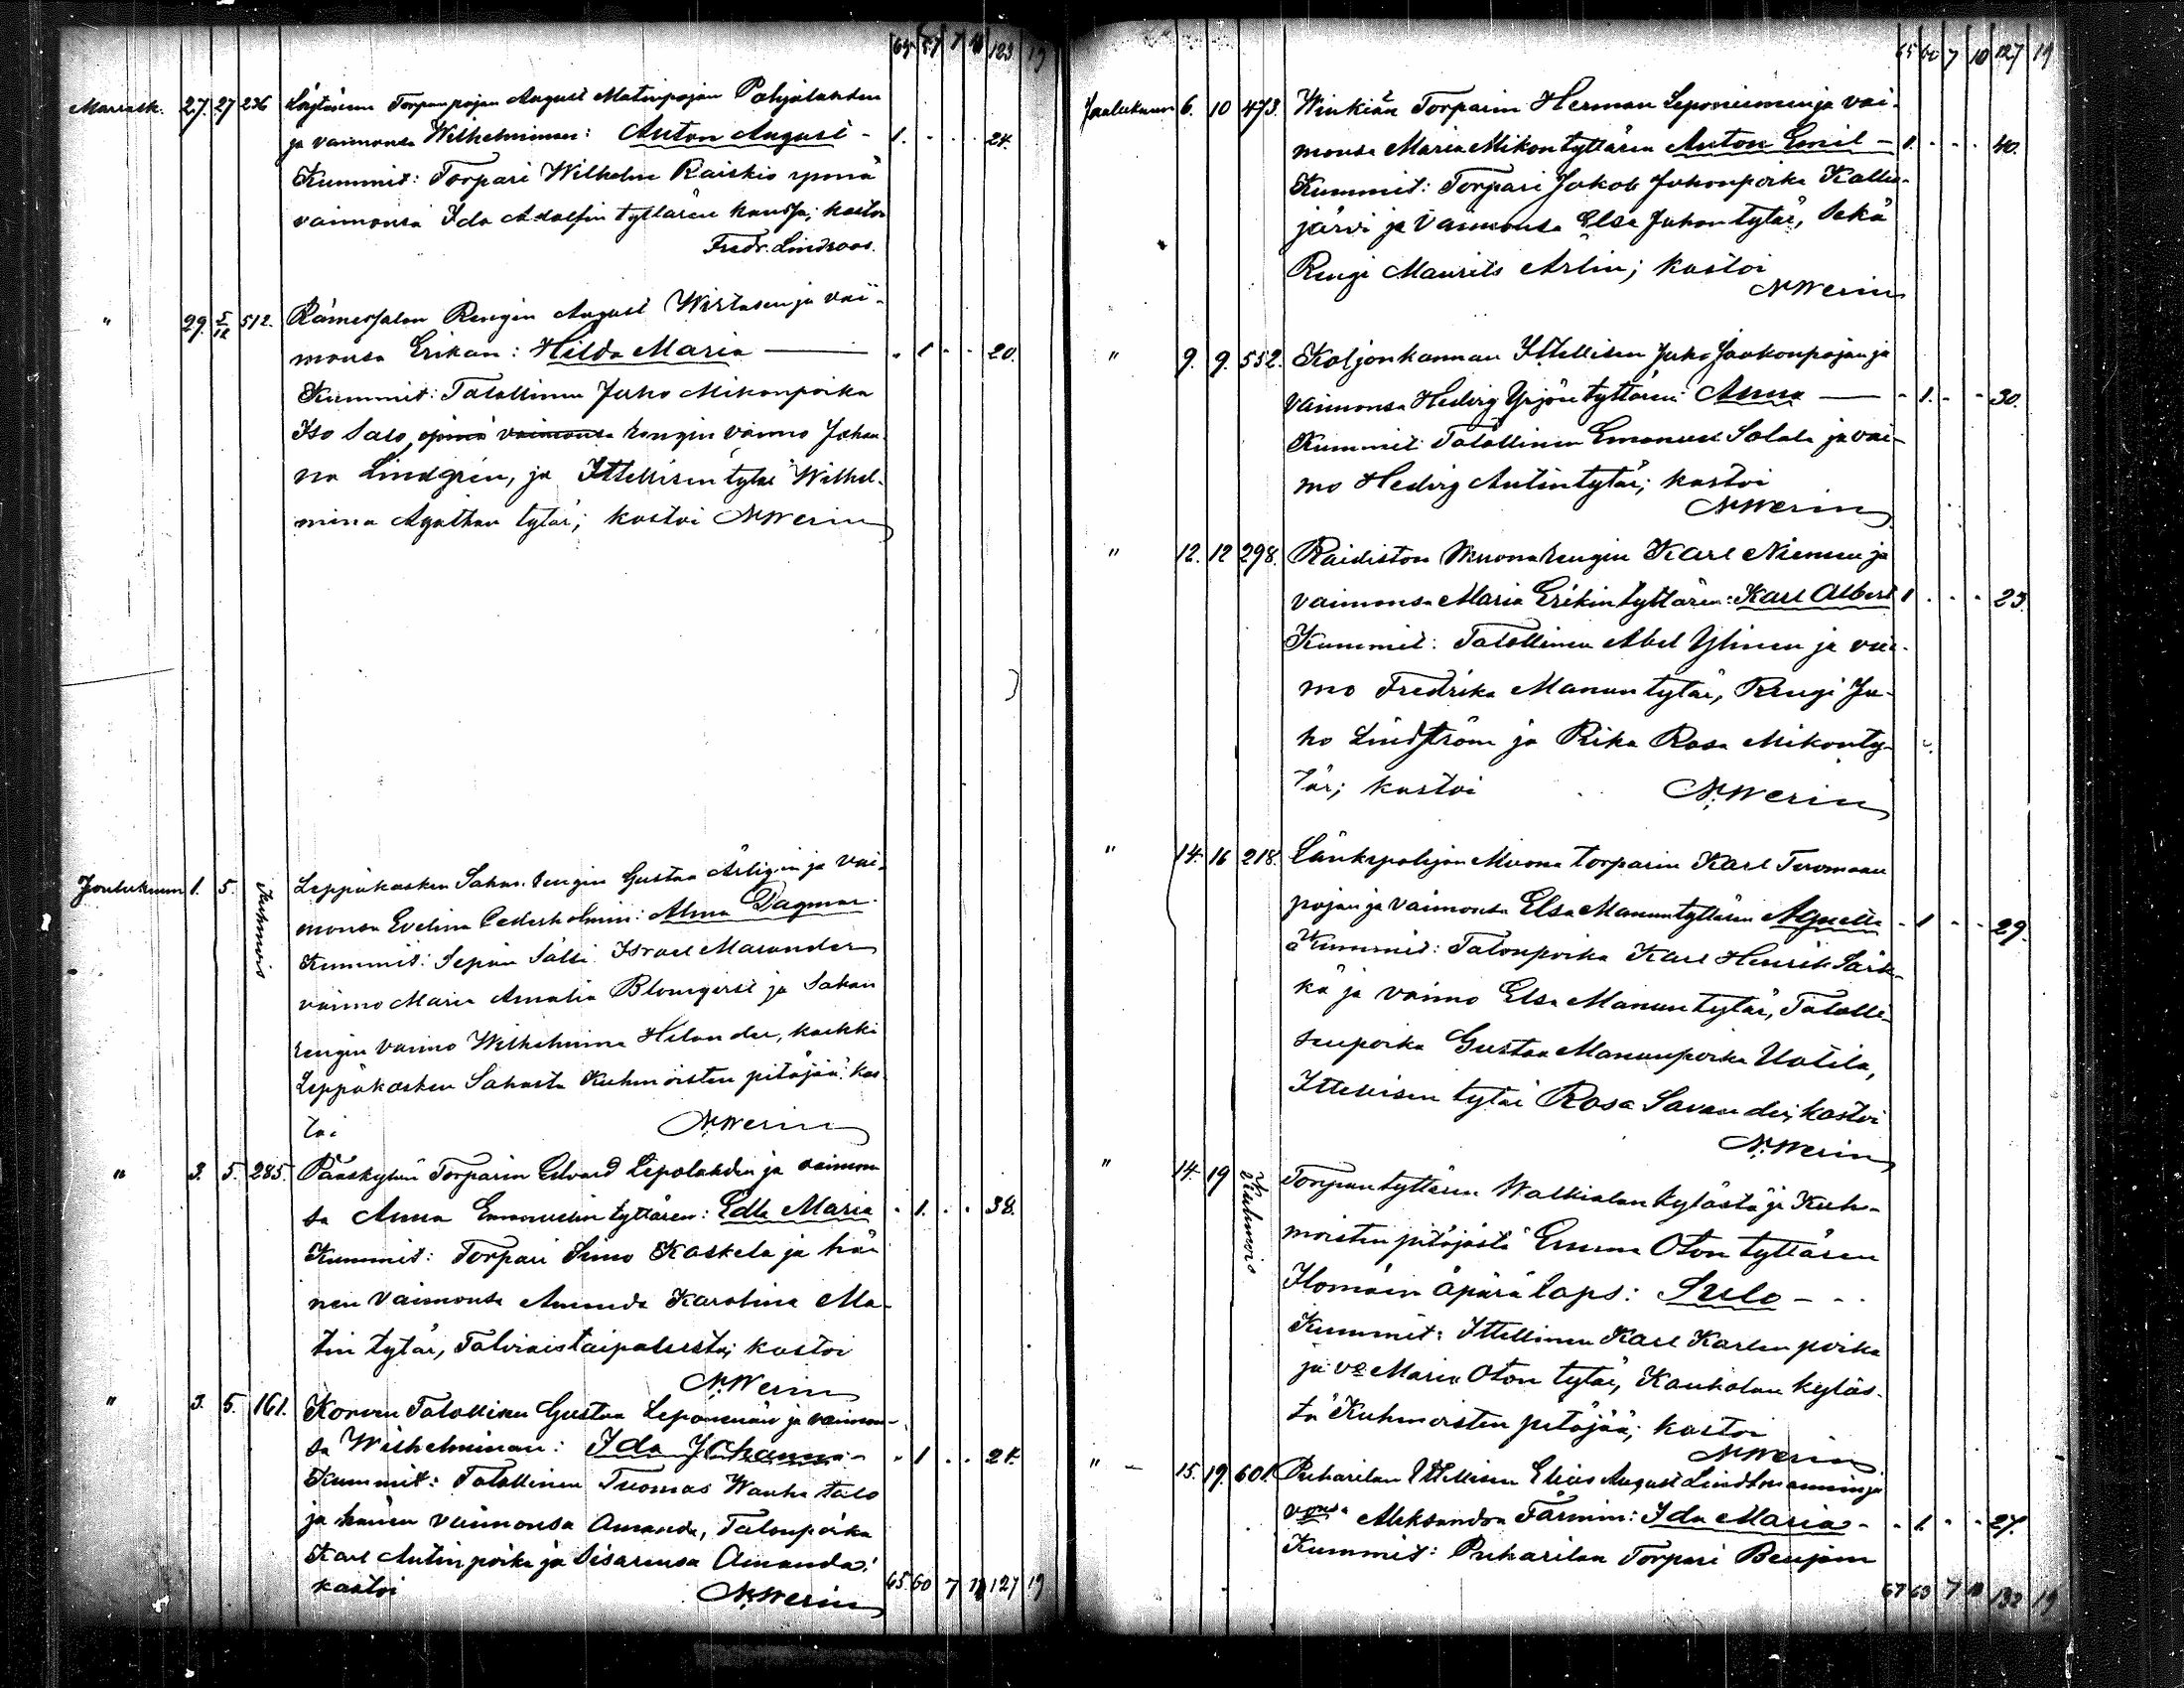 64 57 7 10 123 19
Marrask. 27. 27 236 Torpanpojan August Matinpojan Pohjalahden
ja vaimonsa Wilhelminan: Anton August - 1. . . . 24.
Kummit: Torpari Wilhelm Raiskio ynnä
vaimonsa Ida Adolfin tyttären kanssa; kastoi
Fredr. Lindroos.
" 29. 5/12 512. Rämessalon Rengin August Wirtasen ja vai-
monsa Erikan: Hilda Maria — . 1 . . 20.
Kummit: Talollinen Juho Mikonpoika
Iso Salo, vaimonsa rengin vaimo Johan-
na Lindgrén, ja Ittellisen tytär Wilhel-
mina Agathan tytär; kastoi N. Werin
Joulukuun 1. 5. Kuhmois Leppäkosken Sahan rengin Gustaa Ärligin ja vai-
monsa Evelina Cederholmin: Alma Dagmar.
Kummit: Sepän Sälli Israel Masander
vaimo Maria Amalia Blomqvist ja Sahan
rengin vaimo Wilhelmina Helander, kaikki
Leppäkosken Sahasta Kuhmoisten pitäjää; kas-
toi N. Werin
" 3. 5. 285. Pääskylän Torparin Edvard Lepolahden ja vaimon-
sa Anna Emanuelin tyttären: Edla Maria . 1. . . 38.
Kummit: Torpari Simo Koskela ja hä-
nen vaimonsa Amanda Karolina Ma-
tin tytär, Talviaistaipaleesta; kastoi
N. Werin
" 3. 5. 161. Korven Talollisen Gustaa Leponiemen ja vaimon-
sa Wilhelminan: Ida Johanna - . 1 . . 21.
Kummit: Talollinen Tuomas Wanhatalo
ja hänen vaimonsa Amanda, Talonpoika
Karl Antinpoika ja Sisarensa Amanda;
kastoi N. Werin 65 60 7 10 127 19
65 60 7 10 127 19
Joulukuun 6. 10 473. Winkiän Torparin Herman Leponiemen ja vai-
monsa Maria Mikontyttären Anton Emil - 1. . . . 40.
Kummit: Torpari Jakob Juhonpoika Kallio-
järvi ja Vaimonsa Elsa Juhontytär, Sekä
Rengi Maurits Arlin; kastoi
N. Werin
" 9. 9. 552. Koljonkannan Ittellisen Juho Jaakonpojan ja
vaimonsa Hedvig Yrjöntyttären: Anna — . 1. . . 30.
Kummit: Talollinen Emanuel Salola ja vai-
mo Hedvig Antintytär; kastoi
N. Werin
" 12. 12 298. Raidiston Muonarengin Karl Niemen ja
vaimonsa Maria Erikintyttären: Karl Albert 1 . . . 23.
Kummit: Talollinen Abel Ylinen ja vai-
mo Fredrika Manuntytär, Rengi Ju-
ho Lindström ja Piika Rosa Mikonty-
tär; kastoi N. Werin
" 14. 16 218. Länkipohjan Muona torparin Karl Tuomaan
pojan ja vaimonsa Elsa Manuntyttären . 1 . . 29.
Kummit: Talonpoika Karl Henrik Särk-
kä ja vaimo Elsa Manuntytär, Talolli-
senpoika Gustaa Manunpoika Uotila,
Ittellisen tytär Rosa Savander; kastoi
N. Werin
" 14. 19 Kuhmois Torpantyttären Walkialan kylästä ja Kuh-
moisten pitäjästä Emma Oton tyttären
Ilomäen äpärä laps: Sulo - . .
Kummit: Ittellinen Karl Karlen poika
ja vo Maria Oton tytär, Kauhalan kyläs-
tä Kuhmoisten pitäjää; kastoi
N. Werin
" 15. 19. 601. Puharilan Ittellisen Elias August Lindhmannin ja
vonsa Aleksandra Färmin: Ida Maria - . 1. . . 27.
Kummit: Puharilan Torpari Benjam
67 63 7 10 132 19